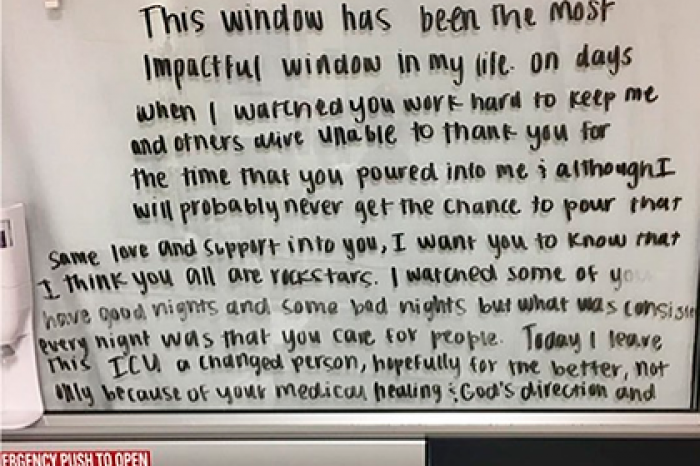 This window has been the most
impactful window in my life. on days
when I watched you work hard to keep me
and others alive unable to thank you for
the time that you poured into me & although I
will probably never get the chance to pour that
same love and support into you, I want you to know that
I think you all are rockstars. I watched some of you
have good nights and some bad nights but what was consis
every night was that you care for people. Today I leave
this ICU a changed person, hopefully for the better, not
only because of your medical healing & God's direction and
ERGENCY PUSH TO OPEN